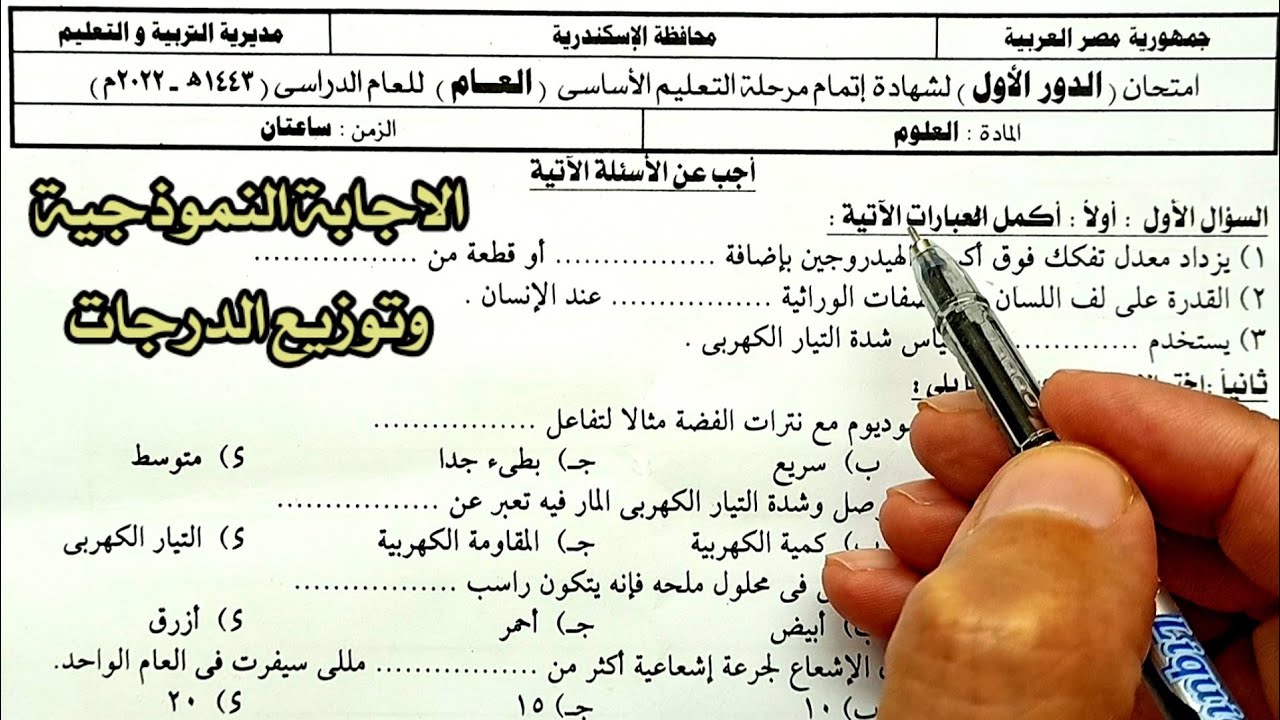 جمهورية مصر العربية
محافظة الإسكندرية
مديرية التربية و التعليم
امتحان ( الدور الأول ) لشهادة إتمام مرحلة التعليم الأساسى ( العـام ) للعام الدراسى ( ١٤٤٣هـ ـ ٢٠٢٢م )
المادة : العلوم
الزمن : ساعتان
أجب عن الأسئلة الآتية
الاجابة النموذجية
وتوزيع الدرجات
السؤال الأول : أولاً : أكمل العبارات الآتية :
١) يزداد معدل تفكك فوق الهيدروجين بإضافة ................ أو قطعة من ................
٢) القدرة على لف اللسان الوراثية ................ عند الإنسان .
٣) يستخدم ............ شدة التيار الكهربى .
ثانياً : يلى :
مع نترات الفضة مثالا لتفاعل ................
ب) سريع جـ) بطىء جدا ء) متوسط
وشدة التيار الكهربى المار فيه تعبر عن ................
ب) كمية الكهربية جـ) المقاومة الكهربية ء) التيار الكهربى
فى محلول ملحه فإنه يتكون راسب ................
ب) أبيض جـ) أحمر ء) أزرق
الإشعاع لجرعة إشعاعية أكثر من ................ مللى سيفرت فى العام الواحد.
ب) ١٠ جـ) ١٥ ء) ٢٠